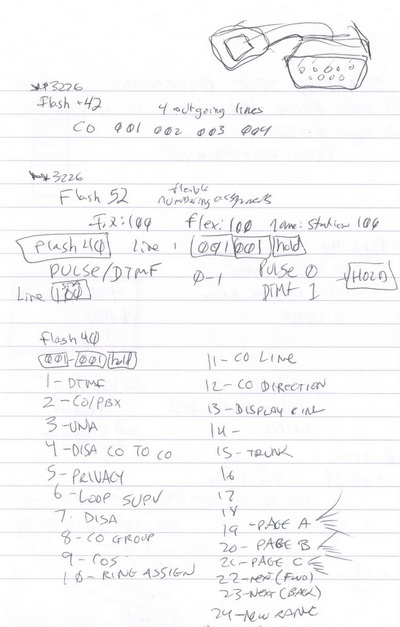 **3226
Flash + 42 4 outgoing lines
CO 001 002 003 004
**3226
Flash 52 flexible numbering assignments
Fix: 100 flex: 100 name: Station 100
Flash 40 Line 1 001 001 hold
PULSE/DTMF 0-1 PULSE 0 HOLD
DTMF 1
Line 100
Flash 40
001-001 hold
1-DTMF
2-CO/PBX
3-UNA
4-DISA CO TO CO
5-PRIVACY
6-LOOP SUPV
7. DISA
8-CO GROUP
9-COS
10-RING ASSIGN
11-CO LINE
12-CO DIRECTION
13-DISPLAY
14-
15-TRUNK
16
17
18
19-PAGE A
20-PAGE B
21-PAGE C
22-NEXT (FWD)
23-NEXT (BACK)
24-NEW RANGE